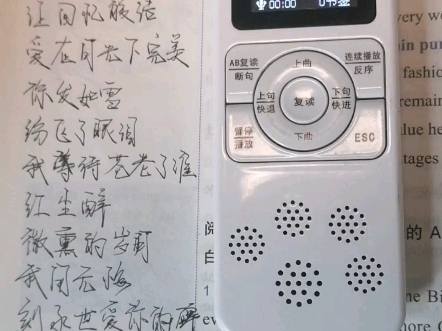 让回忆皎洁
爱在月光下完美
你发如雪
纷飞了眼泪
我等待苍老了谁
红尘醉
微熏的岁月
我用无悔
刻永世爱你的碑
00:00
书签
AB复读
断句
上曲
连续播放
反序
上句
快退
复读
下句
快进
暂停
播放
下曲
ESC
very wo
ain pur
fashion
remain
alue he
tages
阅
的 A
白
1
he Bi
more.
ev